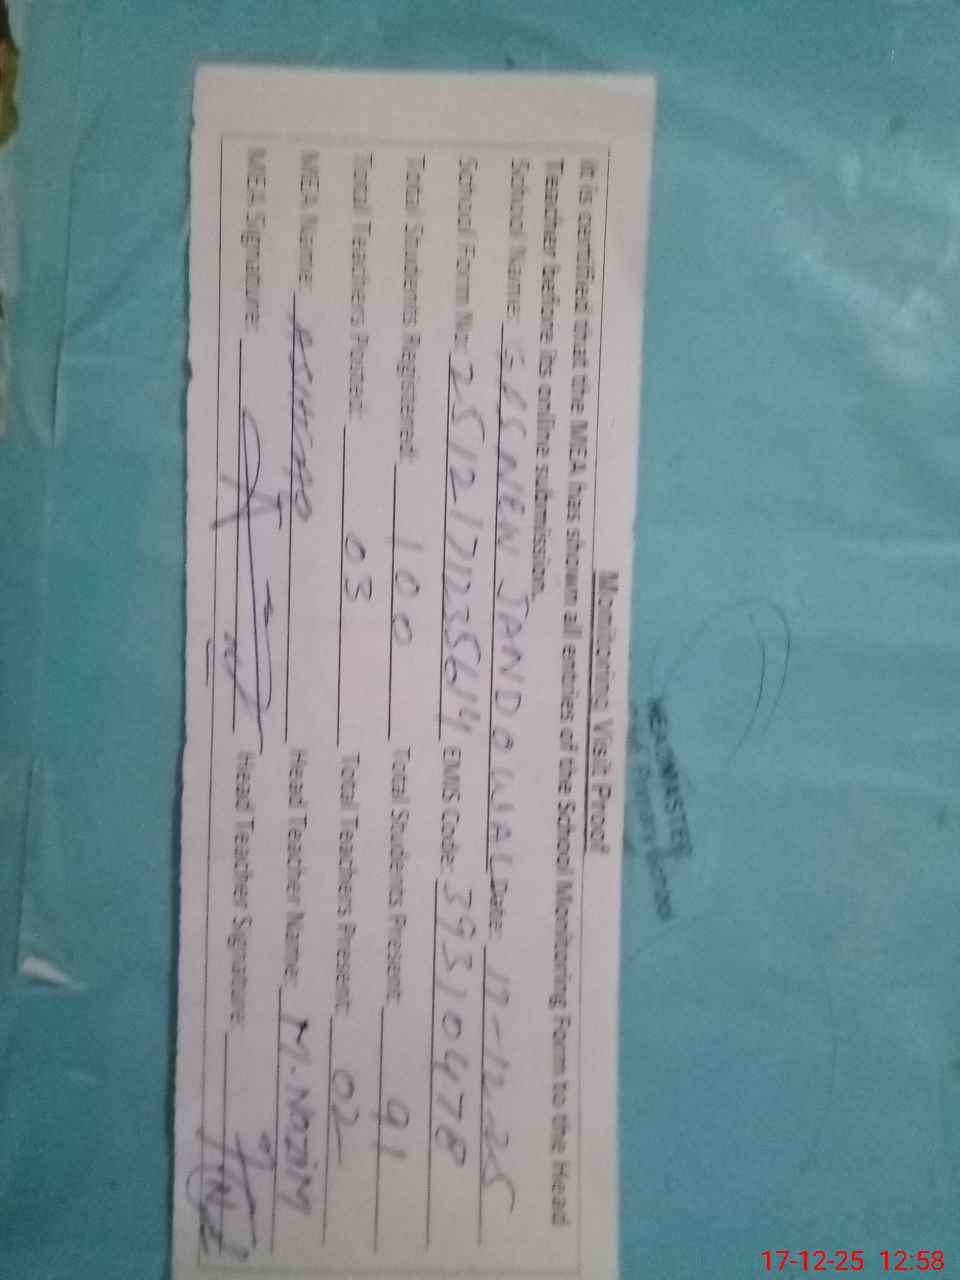 Monitoring Visit Proof
It is certified that the MEA has shown all entries of the School Monitoring Form to the Head
Teacher before its online submission.
School Name: JANDOWAL Date: 17-12-25
School Form No: EMIS Code: 39310478
Total Students Registered: 100 Total Students Present: 91
Total Teachers Posted: 03 Total Teachers Present: 02
MEA Name: Head Teacher Name: M. NAZIM
MEA Signature: Head Teacher Signature:
HEADMASTER
17-12-25 12:58